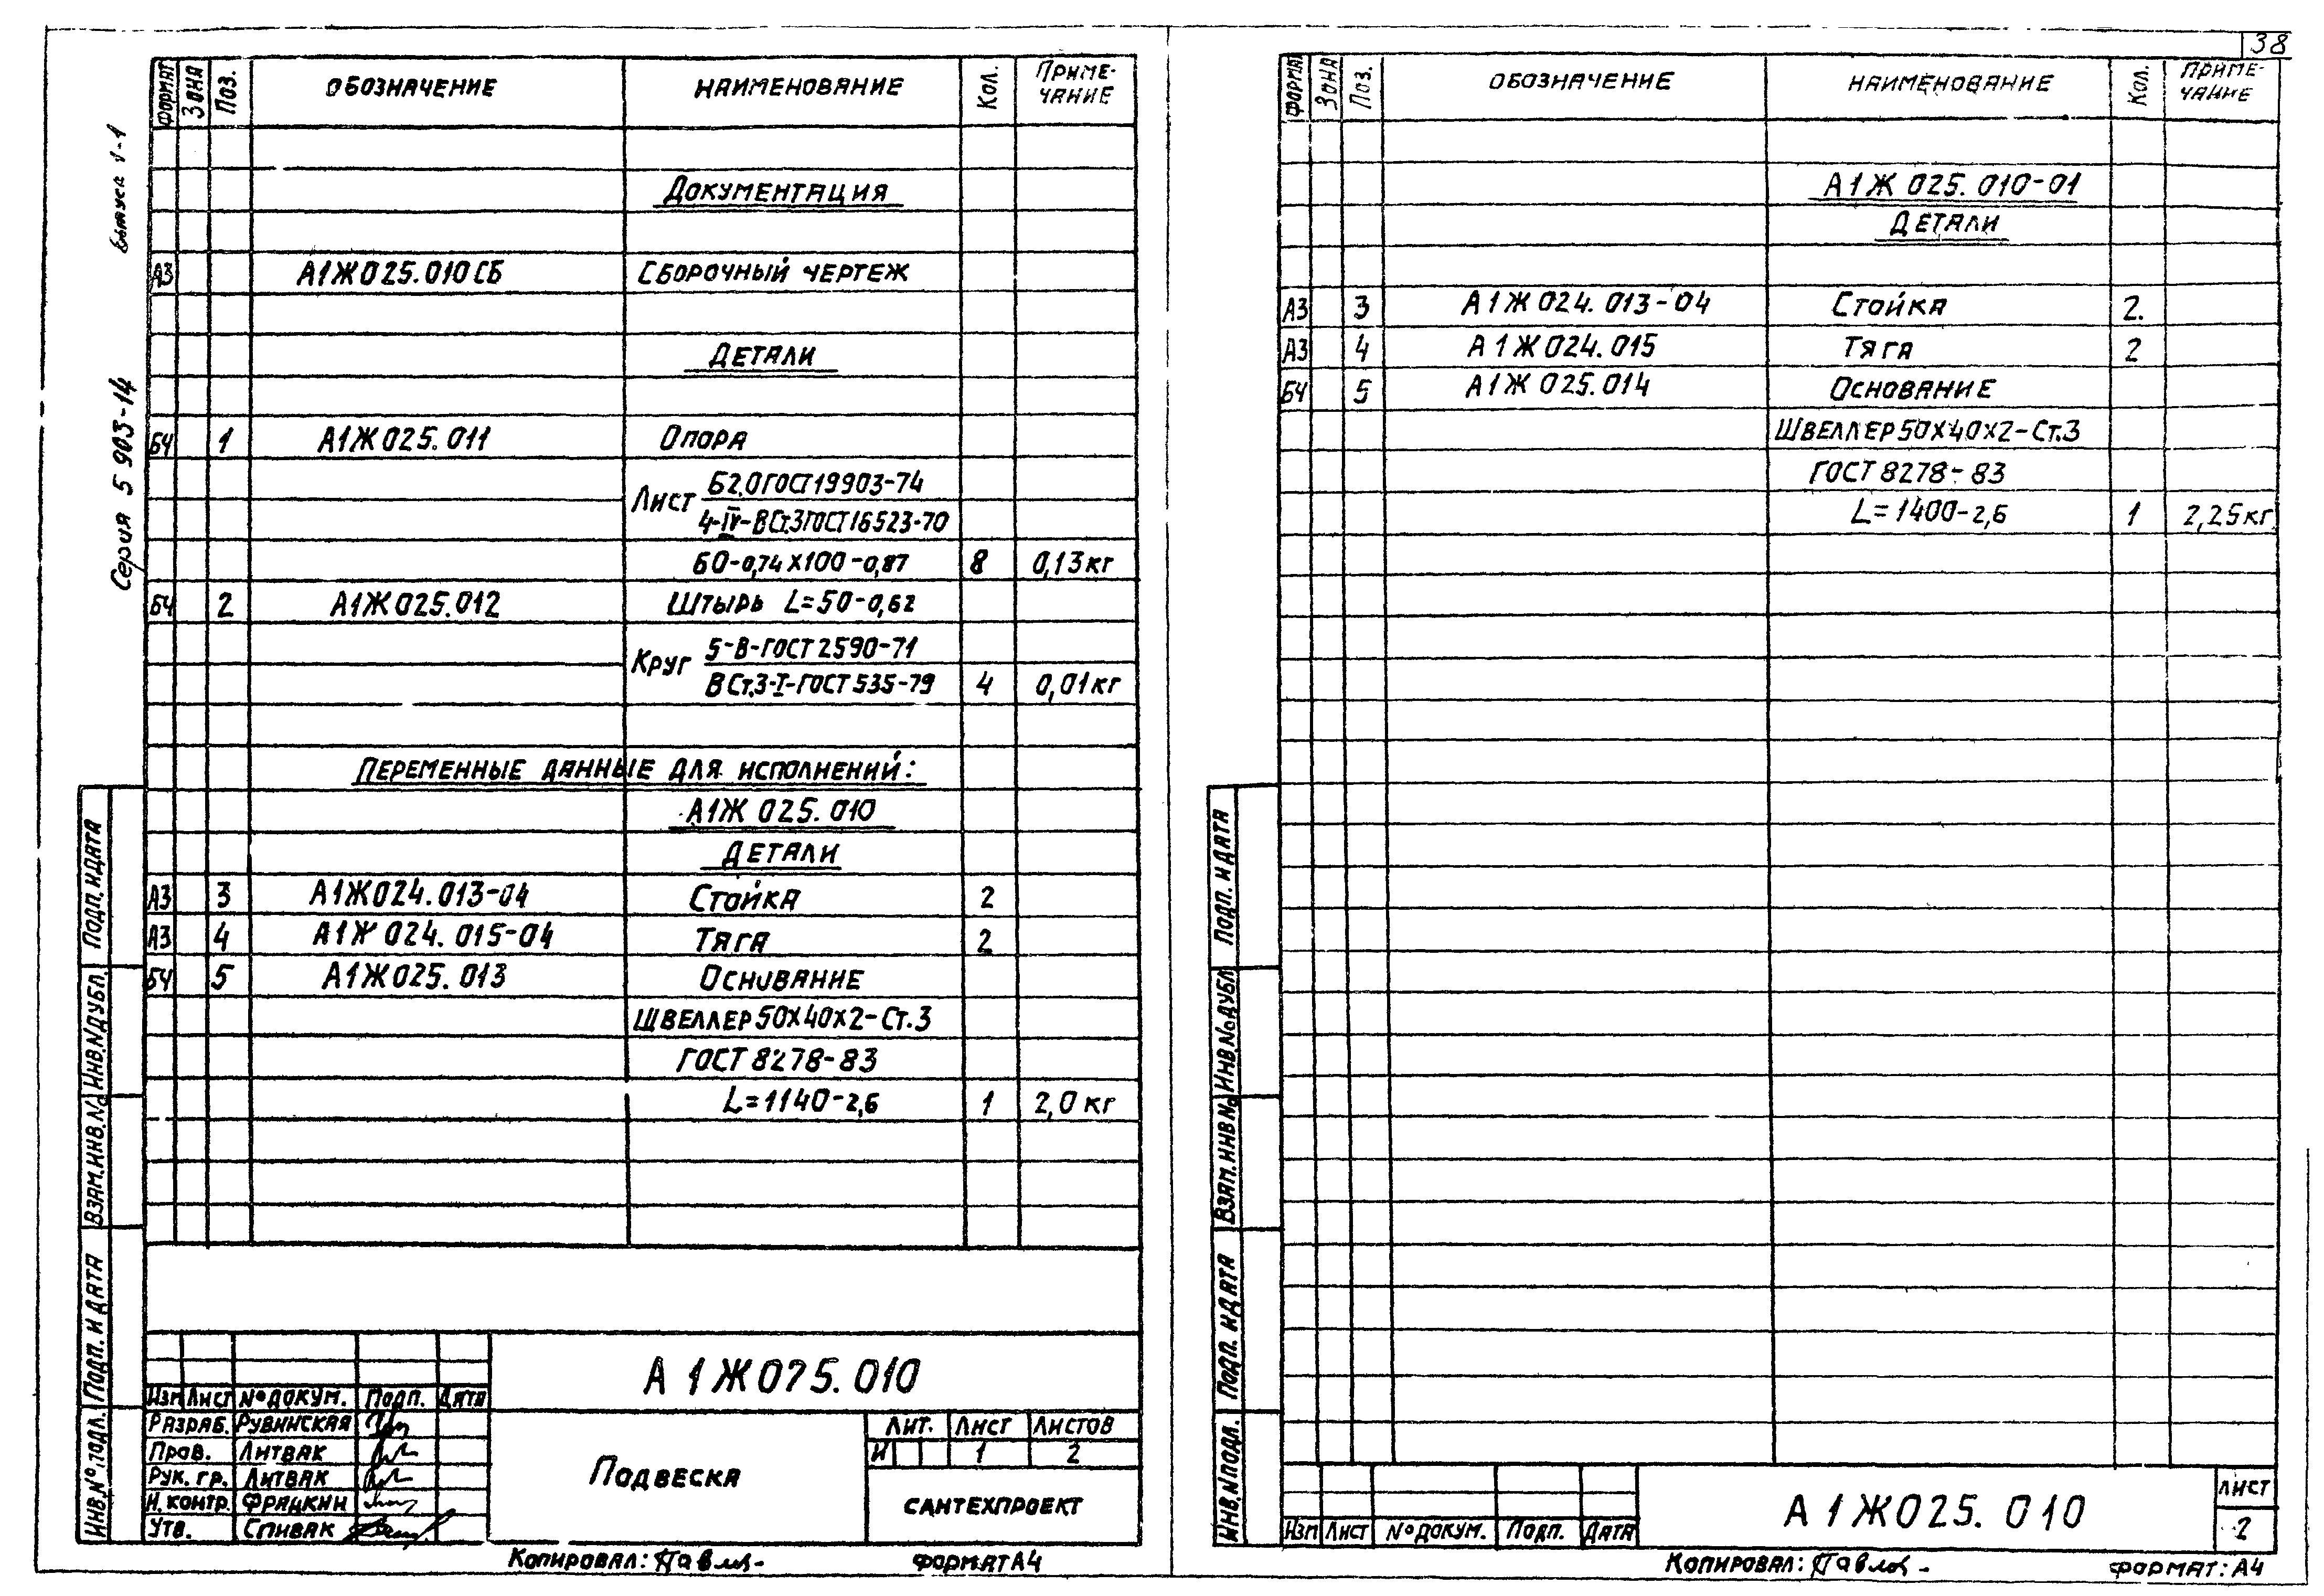 38
Серия 5 903-14
Выпуск 1-1
ФОРМАТ ЗОНА ПОЗ. ОБОЗНАЧЕНИЕ НАИМЕНОВАНИЕ КОЛ. ПРИМЕ-
ЧАНИЕ
ДОКУМЕНТАЦИЯ
А3 А1Ж025.010СБ СБОРОЧНЫЙ ЧЕРТЕЖ
ДЕТАЛИ
БЧ 1 А1Ж025.011 ОПОРА
ЛИСТ Б2.0 ГОСТ 19903-74
4-IV-ВСт.3 ГОСТ 16523-70
60-0,74Х100-0,87 8 0,13кг
БЧ 2 А1Ж025.012 ШТЫРЬ L=50-0,62
КРУГ 5-В-ГОСТ 2590-71
ВСт.3-I-ГОСТ 535-79 4 0,01кг
ПЕРЕМЕННЫЕ ДАННЫЕ ДЛЯ ИСПОЛНЕНИЙ:
А1Ж 025.010
ДЕТАЛИ
А3 3 А1Ж024.013-04 СТОЙКА 2
А3 4 А1Ж 024.015-04 ТЯГА 2
БЧ 5 А1Ж025.013 ОСНОВАНИЕ
ШВЕЛЛЕР 50Х40Х2-Ст.3
ГОСТ 8278-83
L=1140-2,6 1 2,0 кг
ИНВ.№ ПОДЛ. ПОДП. И ДАТА ВЗАМ.ИНВ.№ ИНВ.№ДУБЛ. ПОДП. И ДАТА
А1Ж025.010
ИЗМ ЛИСТ №ДОКУМ. ПОДП. ДАТА
РАЗРАБ. РУВИНСКАЯ
ПРОВ. ЛИТВАК
РУК. ГР. ЛИТВАК
Н.КОНТР. ФРАЦКИН
УТВ. СПИВАК
ПОДВЕСКА
ЛИТ. ЛИСТ ЛИСТОВ
И 1 2
САНТЕХПРОЕКТ
КОПИРОВАЛ: ФОРМАТ А4
ФОРМАТ ЗОНА ПОЗ. ОБОЗНАЧЕНИЕ НАИМЕНОВАНИЕ КОЛ. ПРИМЕ-
ЧАНИЕ
А1Ж 025.010-01
ДЕТАЛИ
А3 3 А1Ж 024.013-04 СТОЙКА 2.
А3 4 А1Ж024.015 ТЯГА 2
БЧ 5 А1Ж 025.014 ОСНОВАНИЕ
ШВЕЛЛЕР 50Х40Х2-Ст.3
ГОСТ 8278-83
L=1400-2,6 1 2,25кг
ИНВ.№ПОДЛ. ПОДП. И ДАТА ВЗАМ.ИНВ.№ ИНВ.№ДУБЛ ПОДП. И ДАТА
ИЗМ ЛИСТ №ДОКУМ. ПОДП. ДАТА
А1Ж025.010
ЛИСТ
2
КОПИРОВАЛ: ФОРМАТ: А4